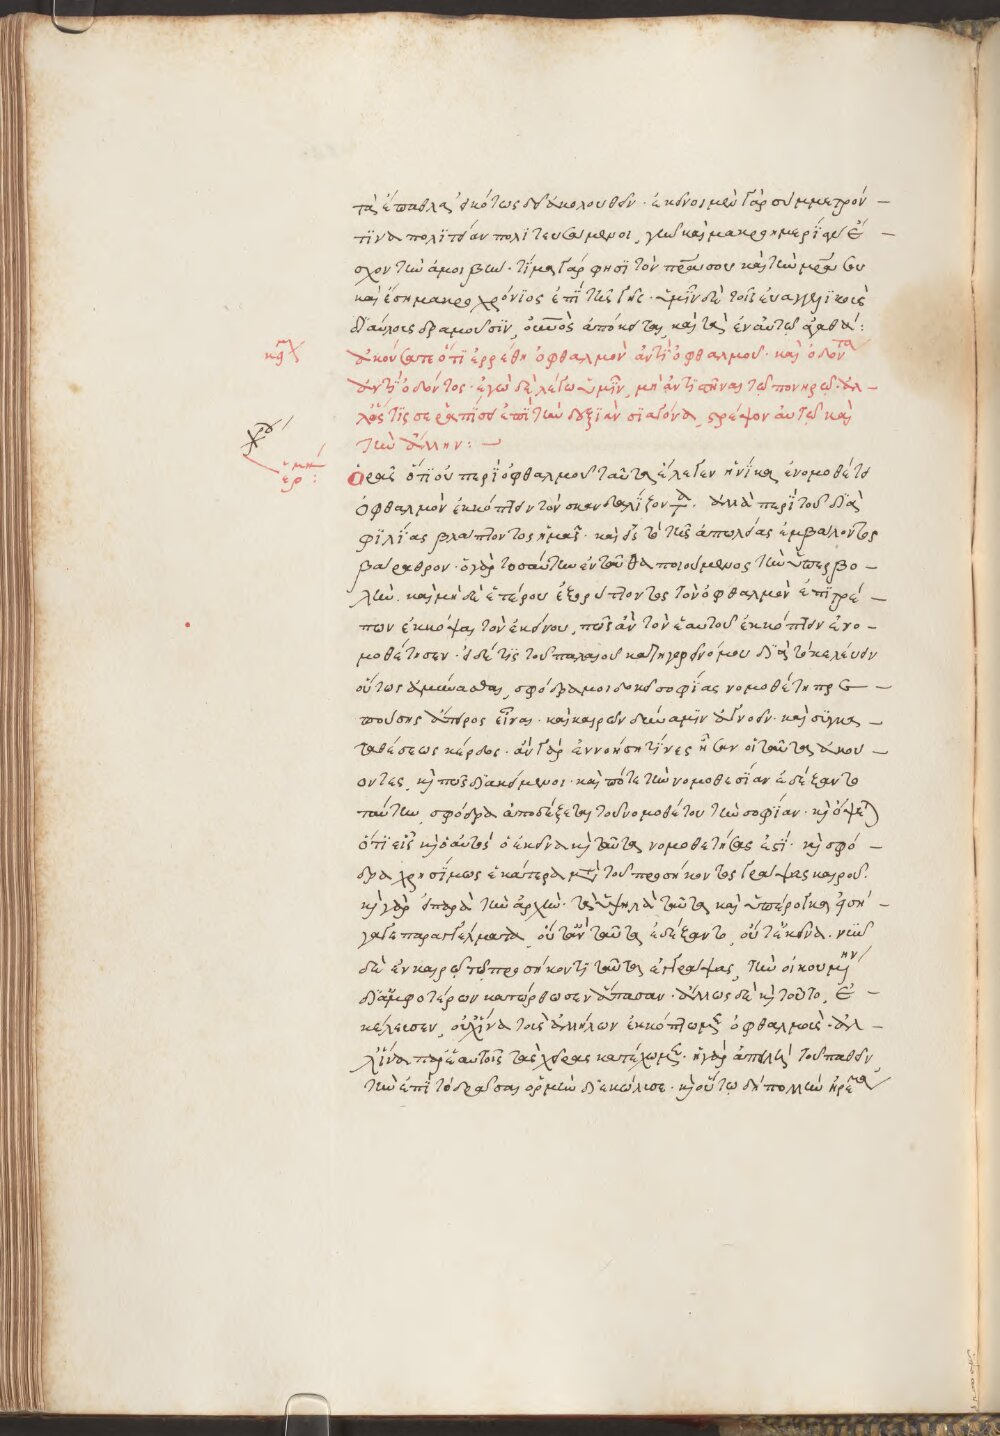 τὰ ἔπαθλα εἰκότως ἐπακολουθεῖν· ἐκεῖνοι μὲν γὰρ σύμμετρόν
τινα πολιτείαν πολιτευσάμενοι, γεωκαὶ μακροημερίαν ἔ
σχον τὴν ἀμοιβήν· τίμα γάρ φησι τὸν πρα σου καὶ τὴν μρα σου
καὶ ἔσῃ μακροχρόνιος ἐπὶ τῆς γῆς· ὑμῖν δὲ τοῖς εὐαγγελικοῖς
διαύλοις δραμοῦσιν, οὐνος ἀπόκειται, καὶ τὰ ἐν αὐτῷ ἀγαθά:
κφ
ἀκούσατε ὅτι ἐρρέθη ὀφθαλμὸν ἀντὶ ὀφθαλμοῦ· καὶ ὀδόντα
ἀντὶ ὀδόντος· ἐγὼ δὲ λέγω ὑμῖν, μὴ ἀντιστῆναι τῷ πονηρῷ· ἀλ
λ' ὅστις σε ῥαπίσει ἐπὶ τὴν δεξιὰν σιαγόνα, στρέψον αὐτῷ καὶ
τὴν ἄλλην:
χρ
ἑρμη
ὁρᾷς ὅτι οὐ περὶ ὀφθαλμοῦ ταῦτα ἔλεγεν ἡνίκα ἐνομοθέτει
ὀφθαλμὸν ἐκκόπτειν τὸν σκανδαλίζοντα· ἀλλὰ περὶ τοῦ διὰ
φιλίας βλάπτοντος ἡμᾶς· καὶ εἰς τὸ τῆς ἀπωλείας ἐμβάλοντος
βάραθρον· ὁ γὰρ τοσαύτην ἐνταῦθα ποιούμενος τὴν ὑπερβο
λήν· καὶ μηδὲ ἑτέρου ἐξορύττοντος τὸν ὀφθαλμὸν ἐπιτρέ
πων ἐκκόψαι τὸν ἐκείνου, πῶς ἂν τὸν ἑαυτοῦ ἐκκόπτειν ἐνο
μοθέτησεν· εἰ δέ τις τοῦ παλαιοῦ κατηγορεῖ νόμου διὰ τὸ κελεύειν
οὕτως ἀμύνασθαι, σφόδρα μοι δοκεῖ σοφίας νομοθέτῃ πρε
πούσης ἄπειρος εἶναι· καὶ καιρῶν δύναμιν ἀγνοεῖν· καὶ συγκα
ταβάσεως κέρδος· ἂν γὰρ ἐννοήσῃ τίνες ἦσαν οἱ ταῦτα ἀκού
οντες, καὶ πῶς διακείμενοι· καὶ πότε τὴν νομοθεσίαν ἐδέξαντο
ταύτην, σφόδρα ἀποδέξεται τοῦ νομοθέτου τὴν σοφίαν· καὶ ὄψεται
ὅτι εἷς καὶ ὁ αὐτὸς ὁ ἐκεῖνα καὶ ταῦτα νομοθετήσας ἐστί· καὶ σφό
δρα χρησίμως ἑκάτερα μετὰ τοῦ προσήκοντος γράψας καιροῦ.
καὶ γὰρ εἰ παρὰ τὴν ἀρχὴν· τὰ ὑψηλὰ ταῦτα καὶ ὑπέρογκα εἰσή
γαγε παραγγέλματα, οὔτ' ἂν ταῦτα ἐδέξαντο, οὔτ' ἐκεῖνα· νυνὶ
δὲ ἐν καιρῷ τῷ προσήκοντι ταῦτα ἐγγράψας, τὴν οἰκουμένην
δι' ἀμφοτέρων κατώρθωσεν ἅπασαν· ἄλλως δὲ καὶ τοῦτο, ἐ
κέλευσεν, οὐχ ἵνα τοὺς ἀλλήλων ἐκκόπτωμεν ὀφθαλμούς· ἀλ
λ' ἵνα παρ' ἑαυτοῖς τὰς χεῖρας κατέχωμεν· ἡ γὰρ ἀπειλὴ τοῦ παθεῖν
τὴν ἐπὶ τὸ δρᾶσαι ὁρμὴν διεκώλυσε· καὶ οὕτω δὴ πολλὴν ἠρέμα